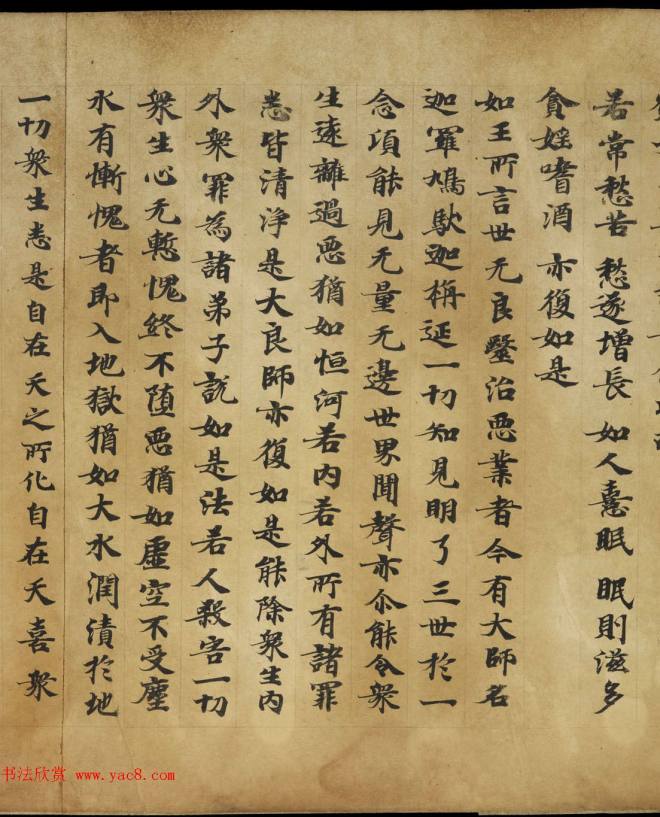 若常愁苦 愁遂增長 如人憙眠 眠則滋多
貪婬嗜酒 亦復如是
如王所言世无良毉治惡業者今有大師名
迦羅鳩馱迦栴延一切知見明了三世於一
念頃能見无量无邊世界聞聲亦尒能令衆
生遠離過惡猶如恒河若内若外所有諸罪
悉皆清淨是大良師亦復如是能除衆生内
外衆罪為諸弟子説如是法若人殺害一切
衆生心无慙愧終不墮惡猶如虛空不受塵
水有慚愧者即入地獄猶如大水潤漬於地
一切衆生悉是自在天之所化自在天喜衆
书法欣赏 www.yac8.com